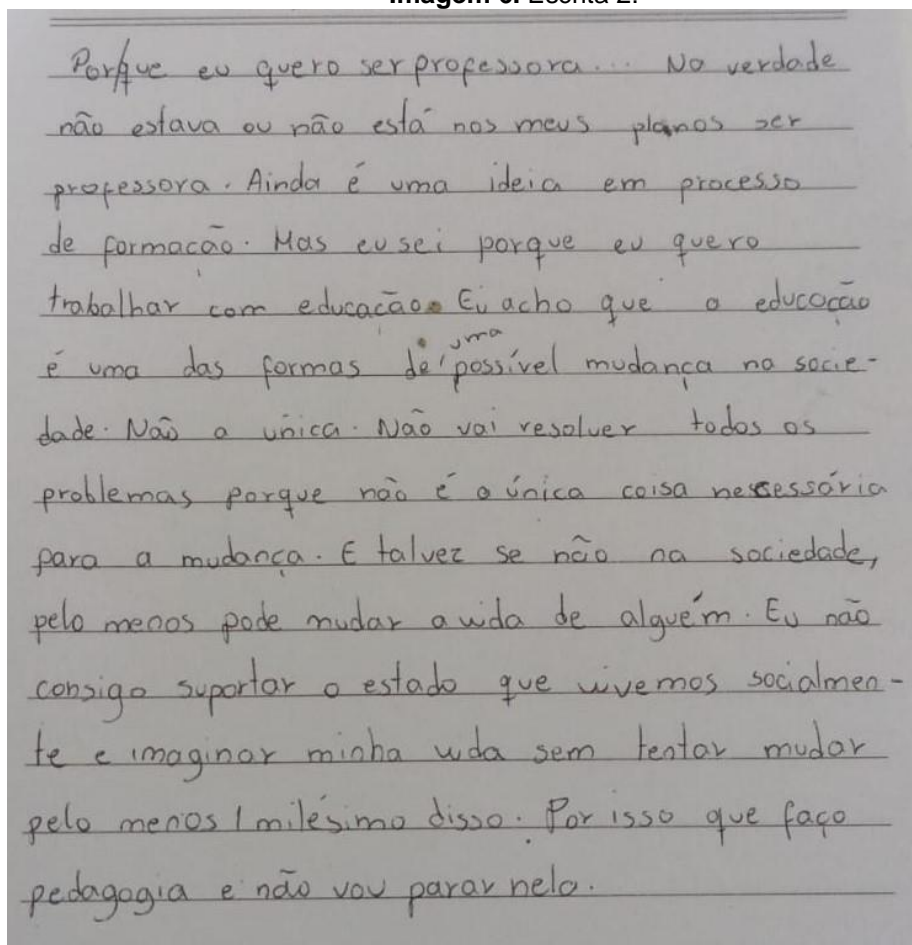 Imagem 6. Escrita 2.
Porque eu quero ser professora... Na verdade
não estava ou não está nos meus planos ser
professora. Ainda é uma ideia em processo
de formação. Mas eu sei porque eu quero
trabalhar com educação. Eu acho que a educação
é uma das formas de uma possível mudança na socie-
dade. Não a única. Não vai resolver todos os
problemas porque não é a única coisa necessária
para a mudança. E talvez se não na sociedade,
pelo menos pode mudar a vida de alguém. Eu não
consigo suportar o estado que vivemos socialmen-
te e imaginar minha vida sem tentar mudar
pelo menos 1 milésimo disso. Por isso que faço
pedagogia e não vou parar nela.